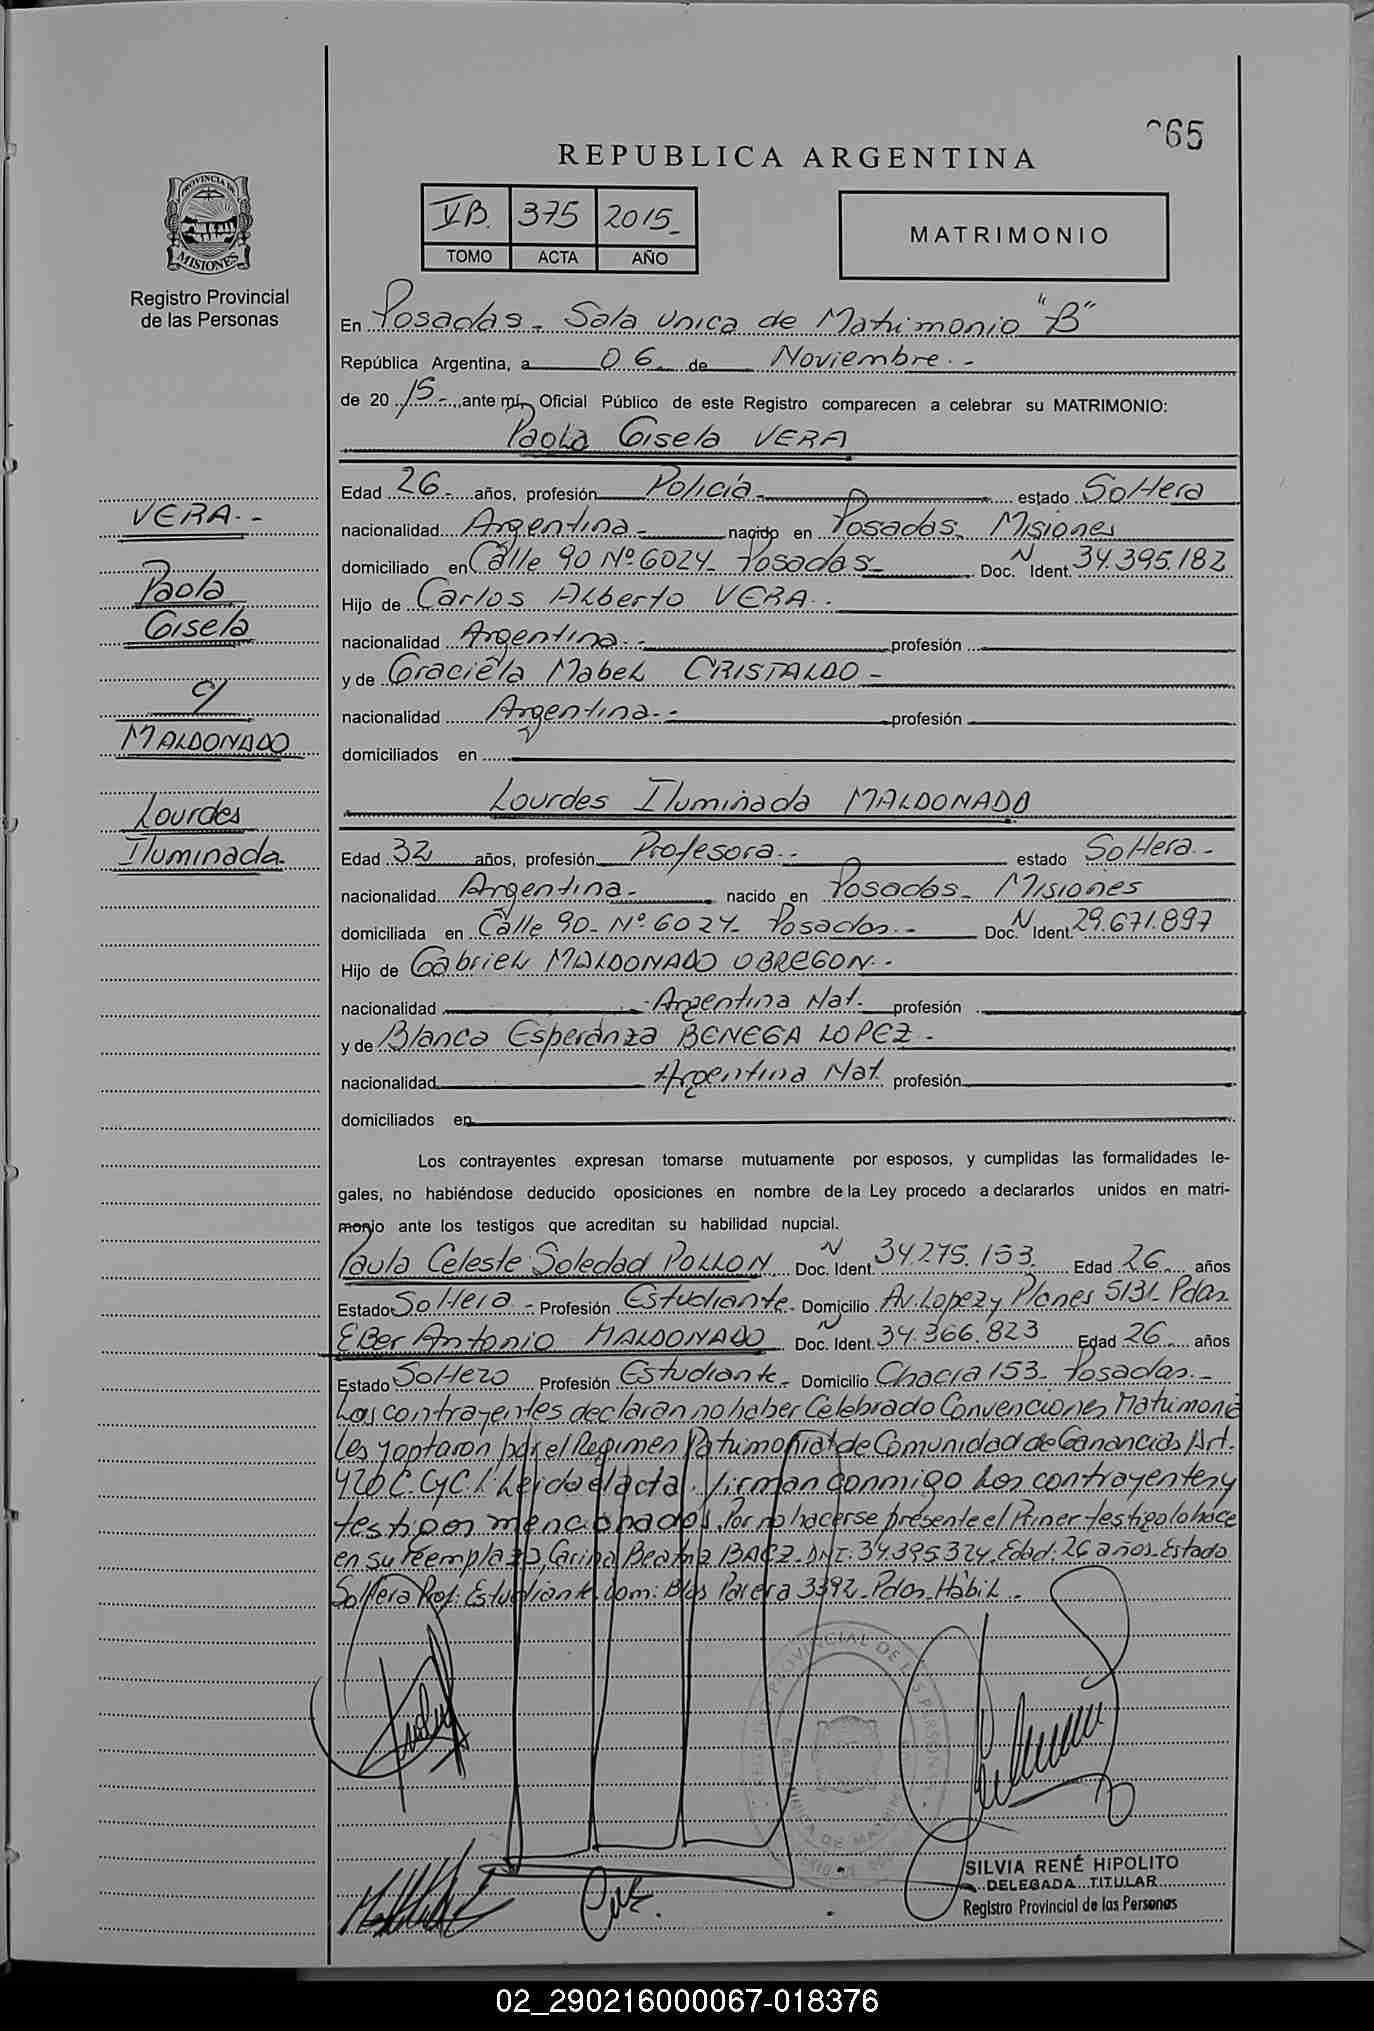 065
REPUBLICA ARGENTINA
VB. 375 2015_
TOMO ACTA AÑO
MATRIMONIO
PROVINCIA DE
MISIONES
Registro Provincial
de las Personas
En Posadas_ Sala unica de Matrimonio "B"
República Argentina, a 06 de Noviembre.-
de 20 15-, ante mí, Oficial Público de este Registro comparecen a celebrar su MATRIMONIO:
Paola Gisela VERA
Edad 26 años, profesión Policía estado Soltera
nacionalidad Argentina.- nacido en Posadas_ Misiones
domiciliado en Calle 90 Nº 6024_ Posadas_ Doc. N Ident. 34.395.182
Hijo de Carlos Alberto VERA.-
nacionalidad Argentina.- profesión
y de Graciela Mabel CRISTALDO-
nacionalidad Argentina.- profesión
domiciliados en
Lourdes Iluminada MALDONADO
Edad 32 años, profesión Profesora.- estado Soltera.-
nacionalidad Argentina.- nacido en Posadas_ Misiones
domiciliada en Calle 90_ Nº 6024_ Posadas.- Doc. N Ident. 29.671.897
Hijo de Gabriel MALDONADO OBREGON.-
nacionalidad Argentina Nat. profesión
y de Blanca Esperanza BENEGA LOPEZ-
nacionalidad Argentina Nat. profesión
domiciliados en
VERA.-
Paola
Gisela
c/
MALDONADO
Lourdes
Iluminada.
Los contrayentes expresan tomarse mutuamente por esposos, y cumplidas las formalidades le-
gales, no habiéndose deducido oposiciones en nombre de la Ley procedo a declararlos unidos en matri-
monio ante los testigos que acreditan su habilidad nupcial.
Paula Celeste Soledad POLLON Doc. N Ident. 34.275.153. Edad 26 años
Estado Soltera- Profesión Estudiante- Domicilio Av. Lopez y Planes 5131_ Pdas.
Eber Antonio MALDONADO Doc. N Ident. 34.366.823 Edad 26 años
Estado Soltero Profesión Estudiante- Domicilio Chacra 153_ Posadas.-
Los contrayentes declaran no haber Celebrado Convenciones Matrimonia
les y optaron por el Regimen Patrimonial de Comunidad de Ganancias Art.
420 C.C y C. Leida el acta, firman conmigo los contrayentes y
testigos mencionados. Por no hacerse presente el Primer testigo lo hace
en su reemplazo, Carina Beatriz BAEZ_ DNI: 34.395.324. Edad. 26 años_ Estado
Soltera Prof: Estudiante_ Dom: Blas Parera 3392_ Pdas_ Hábil.-
SILVIA RENÉ HIPOLITO
DELEGADA TITULAR
Registro Provincial de las Personas
02_290216000067-018376